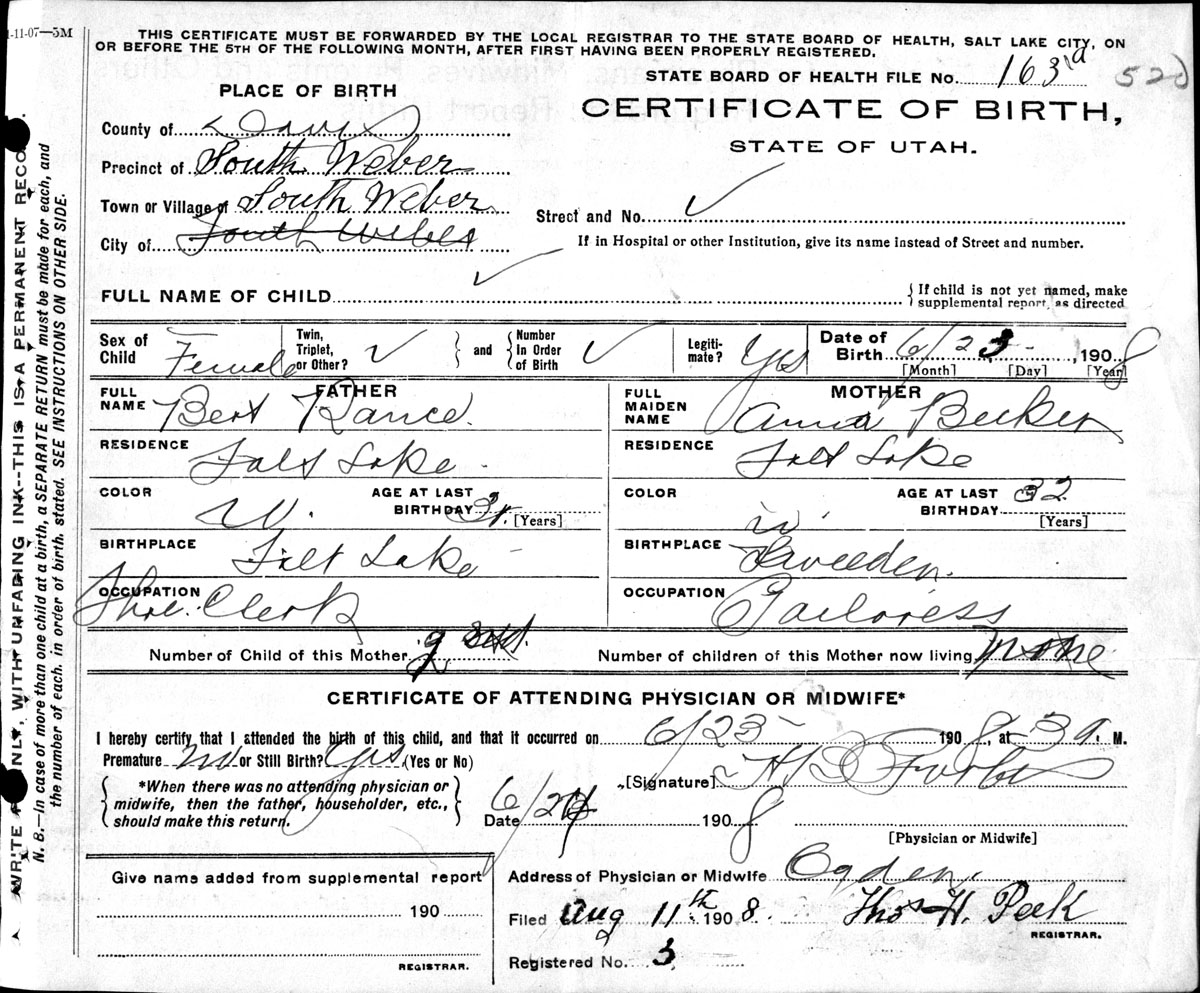 1-11-07—5M
THIS CERTIFICATE MUST BE FORWARDED BY THE LOCAL REGISTRAR TO THE STATE BOARD OF HEALTH, SALT LAKE CITY, ON
OR BEFORE THE 5TH OF THE FOLLOWING MONTH, AFTER FIRST HAVING BEEN PROPERLY REGISTERED.
STATE BOARD OF HEALTH FILE No. 163 a
520
PLACE OF BIRTH
CERTIFICATE OF BIRTH,
STATE OF UTAH.
County of Davis
Precinct of South Weber
Town or Village of South Weber
City of South Weber
Street and No. ✓
If in Hospital or other Institution, give its name instead of Street and number.
FULL NAME OF CHILD ✓
{ If child is not yet named, make
supplemental report, as directed
Sex of Child Female
Twin, Triplet, or Other? ✓ } and { Number In Order of Birth ✓
Legiti-mate? Yes
Date of Birth 6/23 - , 1908
[Month] [Day] [Year]
FATHER
FULL NAME Bert Rance.
RESIDENCE Salt Lake
COLOR W.
AGE AT LAST BIRTHDAY [Years]
BIRTHPLACE Salt Lake
OCCUPATION Shoe Clerk
MOTHER
FULL MAIDEN NAME Anna Becker
RESIDENCE Salt Lake
COLOR W
AGE AT LAST BIRTHDAY 32 [Years]
BIRTHPLACE Sweeden.
OCCUPATION Tailoress
Number of Child of this Mother
Number of children of this Mother now living None
CERTIFICATE OF ATTENDING PHYSICIAN OR MIDWIFE*
I hereby certify that I attended the birth of this child, and that it occurred on 6/23 - 1908, at 3 a. M.
Premature no or Still Birth? Yes (Yes or No)
[Signature]
{ *When there was no attending physician or
midwife, then the father, householder, etc.,
should make this return. }
Date 6/24 1908
[Physician or Midwife]
Give name added from supplemental report
190
REGISTRAR.
Address of Physician or Midwife Ogden.
Filed Aug 11th 1908. Thos H. Peek
REGISTRAR.
Registered No. 3
WRITE PLAINLY, WITH UNFADING INK--THIS IS A PERMANENT RECO
N. B.—In case of more than one child at a birth, a SEPARATE RETURN must be made for each, and
the number of each. in order of birth. stated. SEE INSTRUCTIONS ON OTHER SIDE.